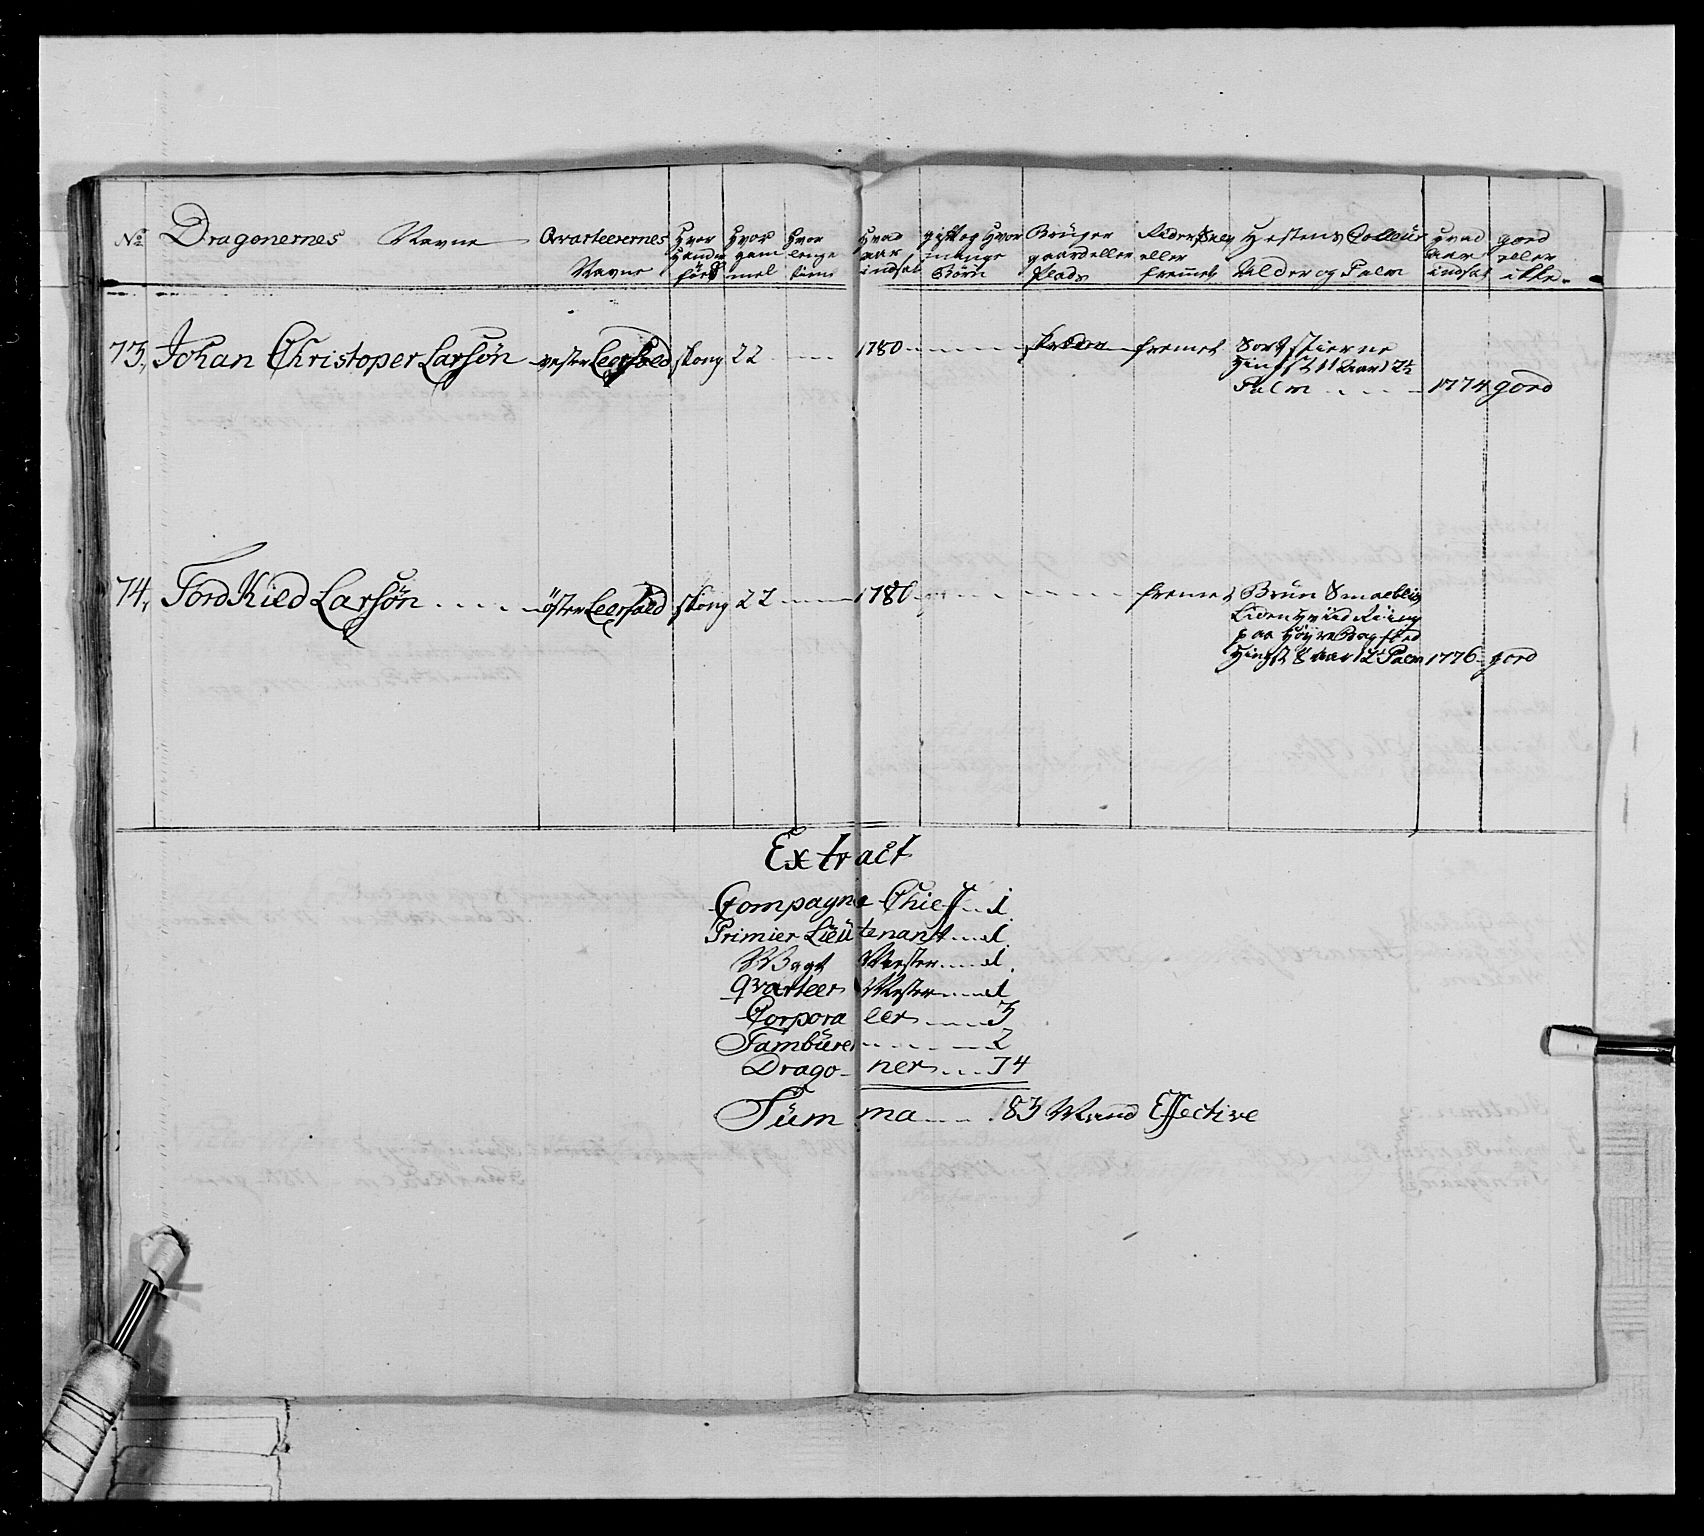 No Dragonernes Navne Qvarteerernes Navne Hvor Hand er föed Hvor gammel Hvor lenge tient Hvad aar indsat gift og Hvor mange Börn Brüger gaard eller Plads eller fremet Hestens Colleür Alder og Palm Hvad aar indsat gord eller ikke
73, Johan Christoper Larsön vester Leersoed skong 22 1780 fremet Sort stierne
Hingst 11 aar 12½
Palm 1774 gord
74, Tord Kild Larsön öster Leersoed skong 22 178 fremet Brün
Liden Hviid
paa Höyre Bag
Hingst 8 aar 12 Palm 1776 gord
Extract
Compagne Chieff 1
Primier Lieütenant 1
Vagt Mester 1
Qvarteer Mester 1
Corporaler 3
Tambürer 2
Dragoner 74
Summa 83 Mand Effective